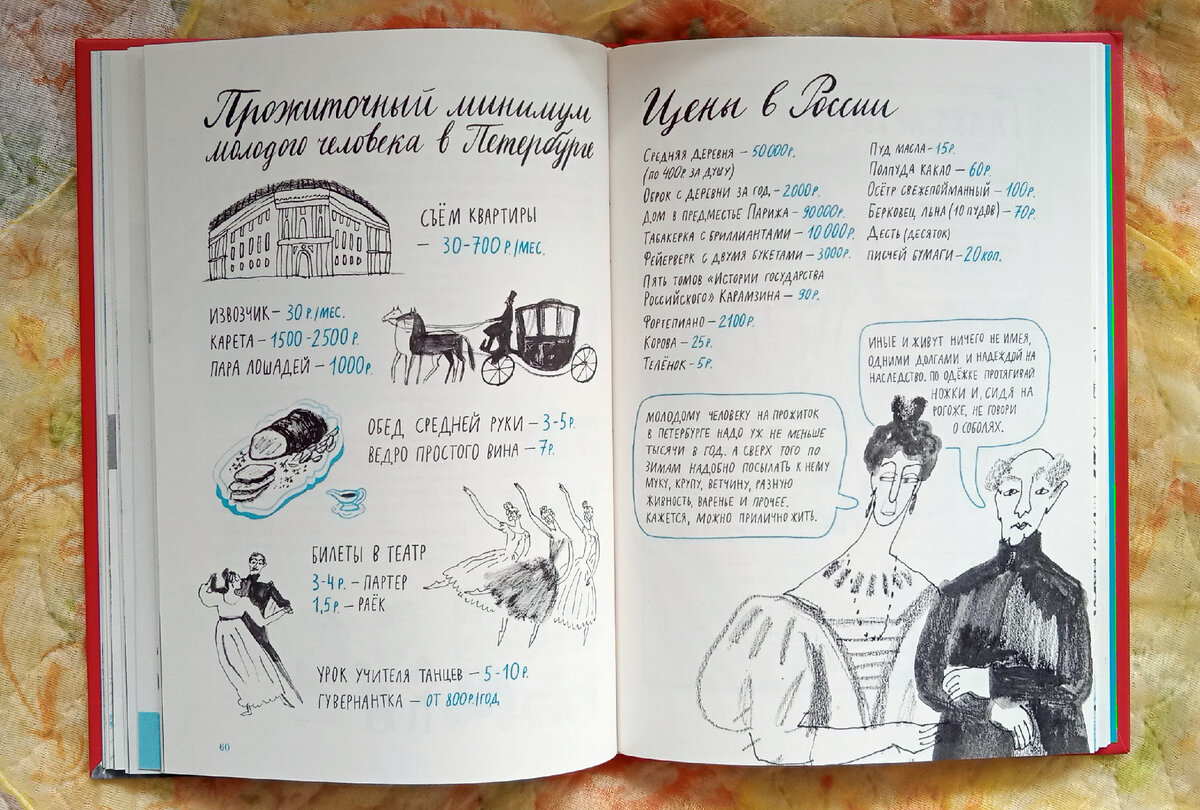 Прожиточный минимум
молодого человека в Петербурге
СЪЁМ КВАРТИРЫ
– 30-700 Р./МЕС.
ИЗВОЗЧИК – 30 Р./МЕС.
КАРЕТА – 1500-2500 Р.
ПАРА ЛОШАДЕЙ – 1000Р.
ОБЕД СРЕДНЕЙ РУКИ – 3-5Р.
ВЕДРО ПРОСТОГО ВИНА – 7Р.
БИЛЕТЫ В ТЕАТР
3-4Р. – ПАРТЕР
1,5Р. – РАЁК
УРОК УЧИТЕЛЯ ТАНЦЕВ – 5-10Р.
ГУВЕРНАНТКА – ОТ 800Р./ГОД
60
Цены в России
СРЕДНЯЯ ДЕРЕВНЯ – 50000Р.
(ПО 400Р. ЗА ДУШУ)
ОБРОК С ДЕРЕВНИ ЗА ГОД, – 2000Р.
ДОМ В ПРЕДМЕСТЬЕ ПАРИЖА – 90000Р.
ТАБАКЕРКА С БРИЛЛИАНТАМИ – 10000Р.
ФЕЙЕРВЕРК С ДВУМЯ БУКЕТАМИ – 3000Р.
ПЯТЬ ТОМОВ «ИСТОРИИ ГОСУДАРСТВА
РОССИЙСКОГО» КАРАМЗИНА – 90Р.
ФОРТЕПИАНО – 2100Р.
КОРОВА – 25Р.
ТЕЛЁНОК – 5Р.
ПУД МАСЛА – 15Р.
ПОЛПУДА КАКАО – 60Р.
ОСЁТР СВЕЖЕПОЙМАННЫЙ – 100Р.
БЕРКОВЕЦ ЛЬНА (10 ПУДОВ) – 70Р.
ДЕСТЬ (ДЕСЯТОК)
ПИСЧЕЙ БУМАГИ – 20КОП.
МОЛОДОМУ ЧЕЛОВЕКУ НА ПРОЖИТОК
В ПЕТЕРБУРГЕ НАДО УЖ НЕ МЕНЬШЕ
ТЫСЯЧИ В ГОД. А СВЕРХ ТОГО ПО
ЗИМАМ НАДОБНО ПОСЫЛАТЬ К НЕМУ
МУКУ, КРУПУ, ВЕТЧИНУ, РАЗНУЮ
ЖИВНОСТЬ, ВАРЕНЬЕ И ПРОЧЕЕ.
КАЖЕТСЯ, МОЖНО ПРИЛИЧНО ЖИТЬ.
ИНЫЕ И ЖИВУТ НИЧЕГО НЕ ИМЕЯ,
ОДНИМИ ДОЛГАМИ И НАДЕЖДОЙ НА
НАСЛЕДСТВО. ПО ОДЁЖКЕ ПРОТЯГИВАЙ
НОЖКИ И, СИДЯ НА
РОГОЖЕ, НЕ ГОВОРИ
О СОБОЛЯХ.